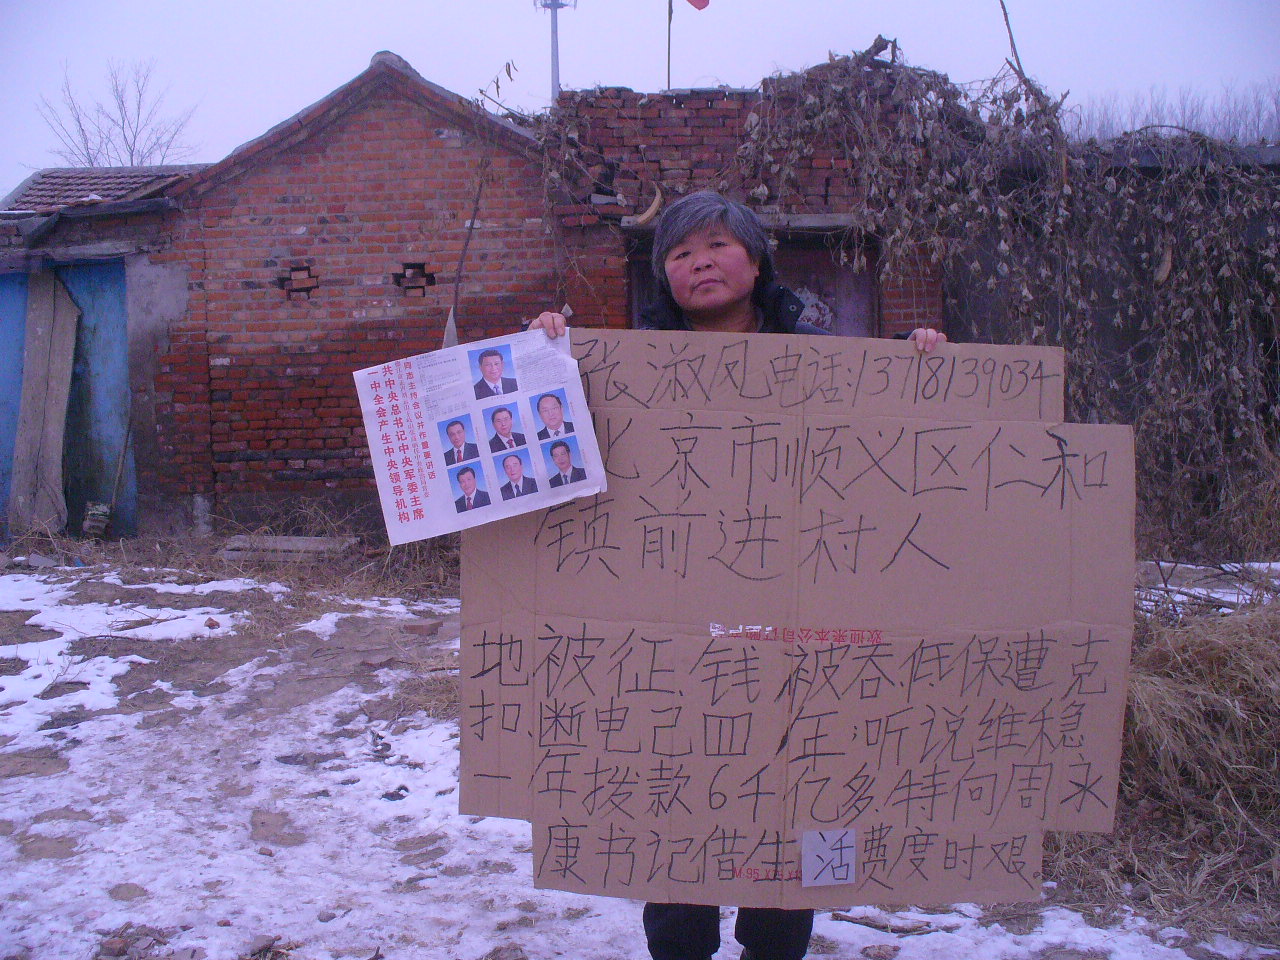 一中全会产生中央领导机构
共中央总书记中央军委主席
同志主持会议并作重要讲话
张淑凤电话:13718139034
北京市顺义区仁和
镇前进村人
欢迎来本公司
地被征、钱被吞、低保遭克
扣、断电己四年;听说维稳
一年拨款6千亿多、特向周永
康书记借生活费度时艰。